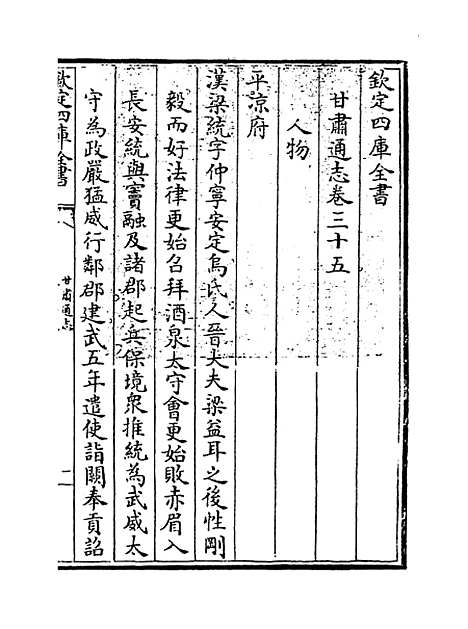 欽定四庫全書
甘肅通志卷三十五
人物
平涼府
漢梁統字仲寧安定烏氏人晉大夫梁益耳之後性剛
毅而好法律更始召拜酒泉太守會更始敗赤眉入
長安統與竇融及諸郡起兵保境衆推統為武威太
守為政嚴猛威行鄰郡建武五年遣使詣闕奉貢詔
欽定四庫全書
甘肅通志